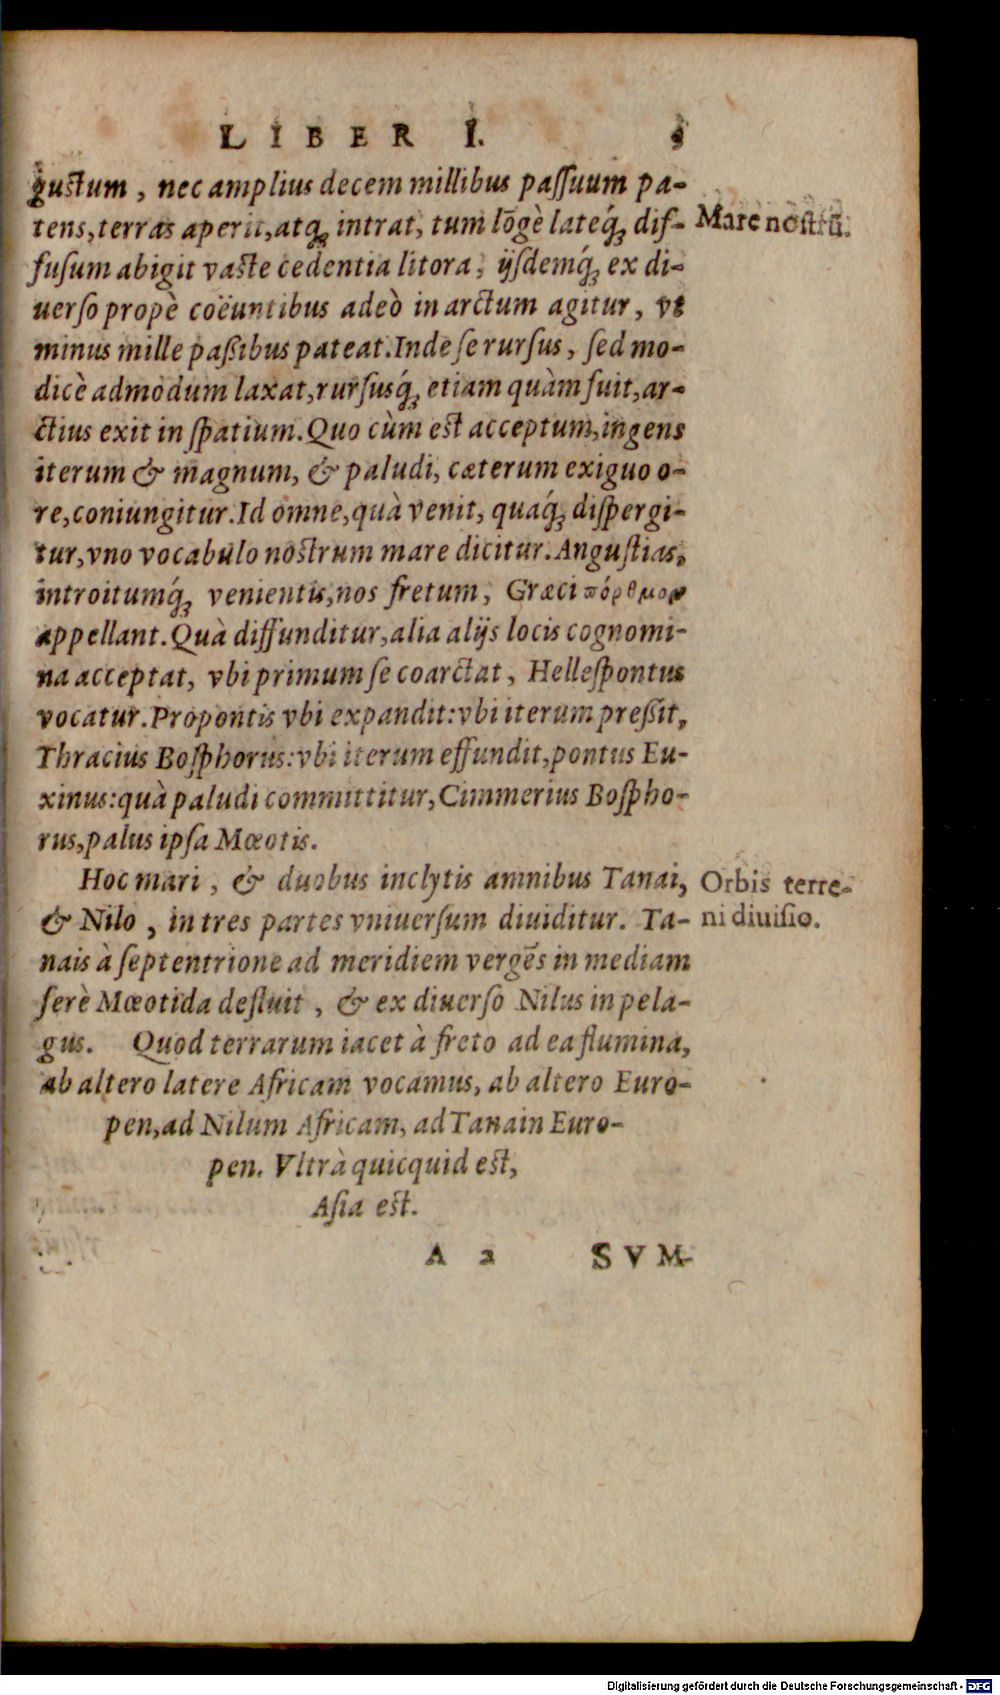 LIBER I.
gustum, nec amplius decem millibus paſſuum pa-
tens, terras aperit, atq; intrat, tum lōgè lateq́; dif-
fuſum abigit vaste cedentia litora, ijſdemq́; ex di-
uerſo propè coëuntibus adeò in arctum agitur, vt
minus mille paßibus pateat. Inde ſe rurſus, ſed mo-
dicè admodum laxat, rurſusq́; etiam quàm fuit, ar-
ctius exit in ſpatium. Quo cùm est acceptum, ingens
iterum & magnum, & paludi, cæterum exiguo o-
re, coniungitur. Id omne, quà venit, quaq́; diſpergi-
tur, vno vocabulo nostrum mare dicitur. Anguſtias,
introitumq́; venientis, nos fretum, Græci πόρθμον
appellant. Quà diffunditur, alia alijs locis cognomi-
na acceptat, vbi primum ſe coarctat, Helleſpontus
vocatur. Propontis vbi expandit: vbi iterum preßit,
Thracius Boſphorus: vbi iterum effundit, pontus Eu-
xinus: quà paludi committitur, Cimmerius Boſpho-
rus, palus ipſa Mæotis.
Hoc mari, & duobus inclytis amnibus Tanai,
& Nilo, in tres partes vniuerſum diuiditur. Ta-
nais à ſeptentrione ad meridiem vergēs in mediam
ferè Mæotida defluit, & ex diuerſo Nilus in pela-
gus. Quod terrarum iacet à freto ad ea flumina,
ab altero latere Africam vocamus, ab altero Euro-
pen, ad Nilum Africam, ad Tanain Euro-
pen. Vltrà quicquid est,
Aſia est.
A 2 SVM-
Mare nostrū.
Orbis terre-
ni diuiſio.
Digitalisierung gefördert durch die Deutsche Forschungsgemeinschaft - DFG